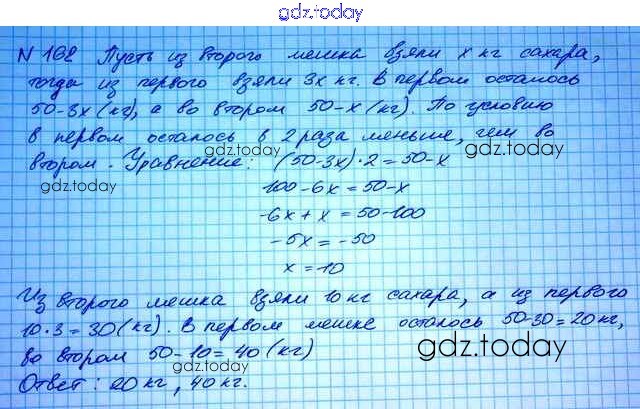 gdz.today
N 168 Пусть из второго мешка взяли x кг сахара,
тогда из первого взяли 3x кг. В первом осталось
50-3x (кг), а во втором 50-x (кг). По условию
gdz.today
в первом осталось в 2 раза меньше, чем во
gdz.today
втором. Уравнение: (50-3x)·2=50-x
gdz.today
100-6x=50-x
-6x+x=50-100
-5x=-50
x=10
Из второго мешка взяли 10 кг сахара, а из первого
10·3=30(кг). В первом мешке осталось 50-30=20кг,
во втором 50-10=40(кг)
gdz.today
Ответ: 20кг, 40кг.